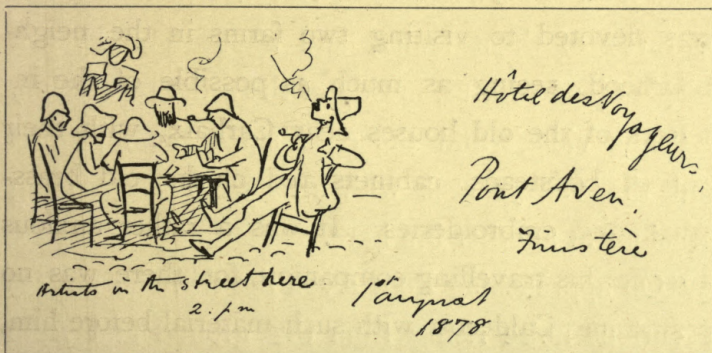 Hôtel des Voyageurs.
Pont Aven.
Finistere
Artists in the street here
2. pm
1st august
1878